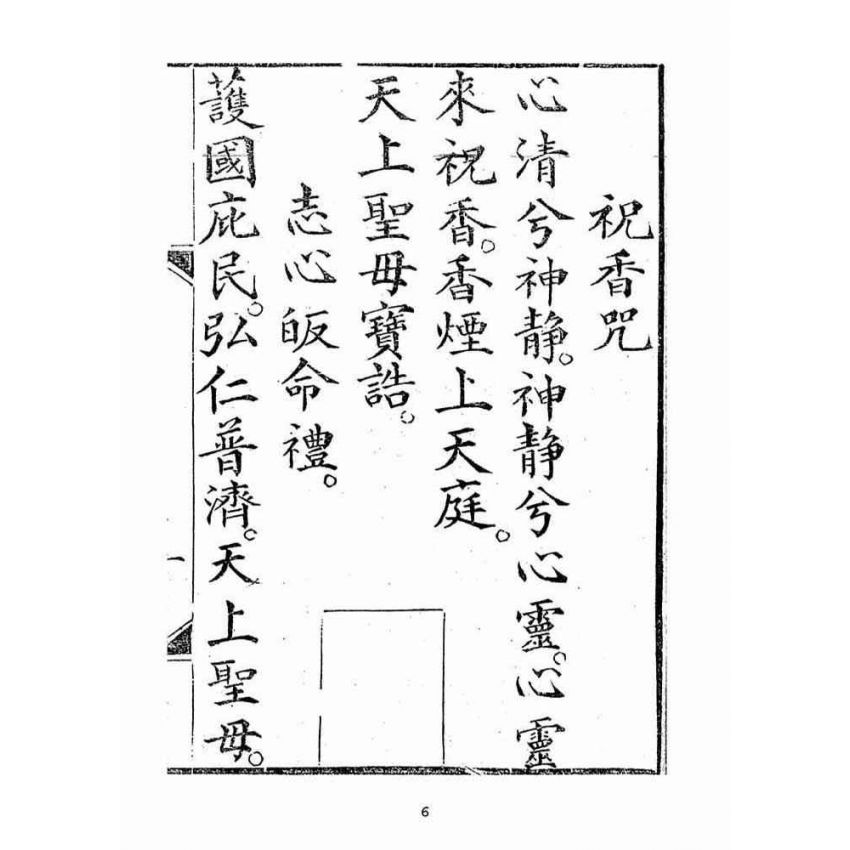 祝香咒
心清兮神静。神静兮心靈。心靈
來祝香。香煙上天庭。
天上聖母寶誥。
志心皈命禮。
護國庇民。弘仁普濟。天上聖母。
一
6